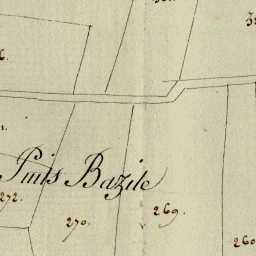 Puits Bazile
272.
270.
269.
260